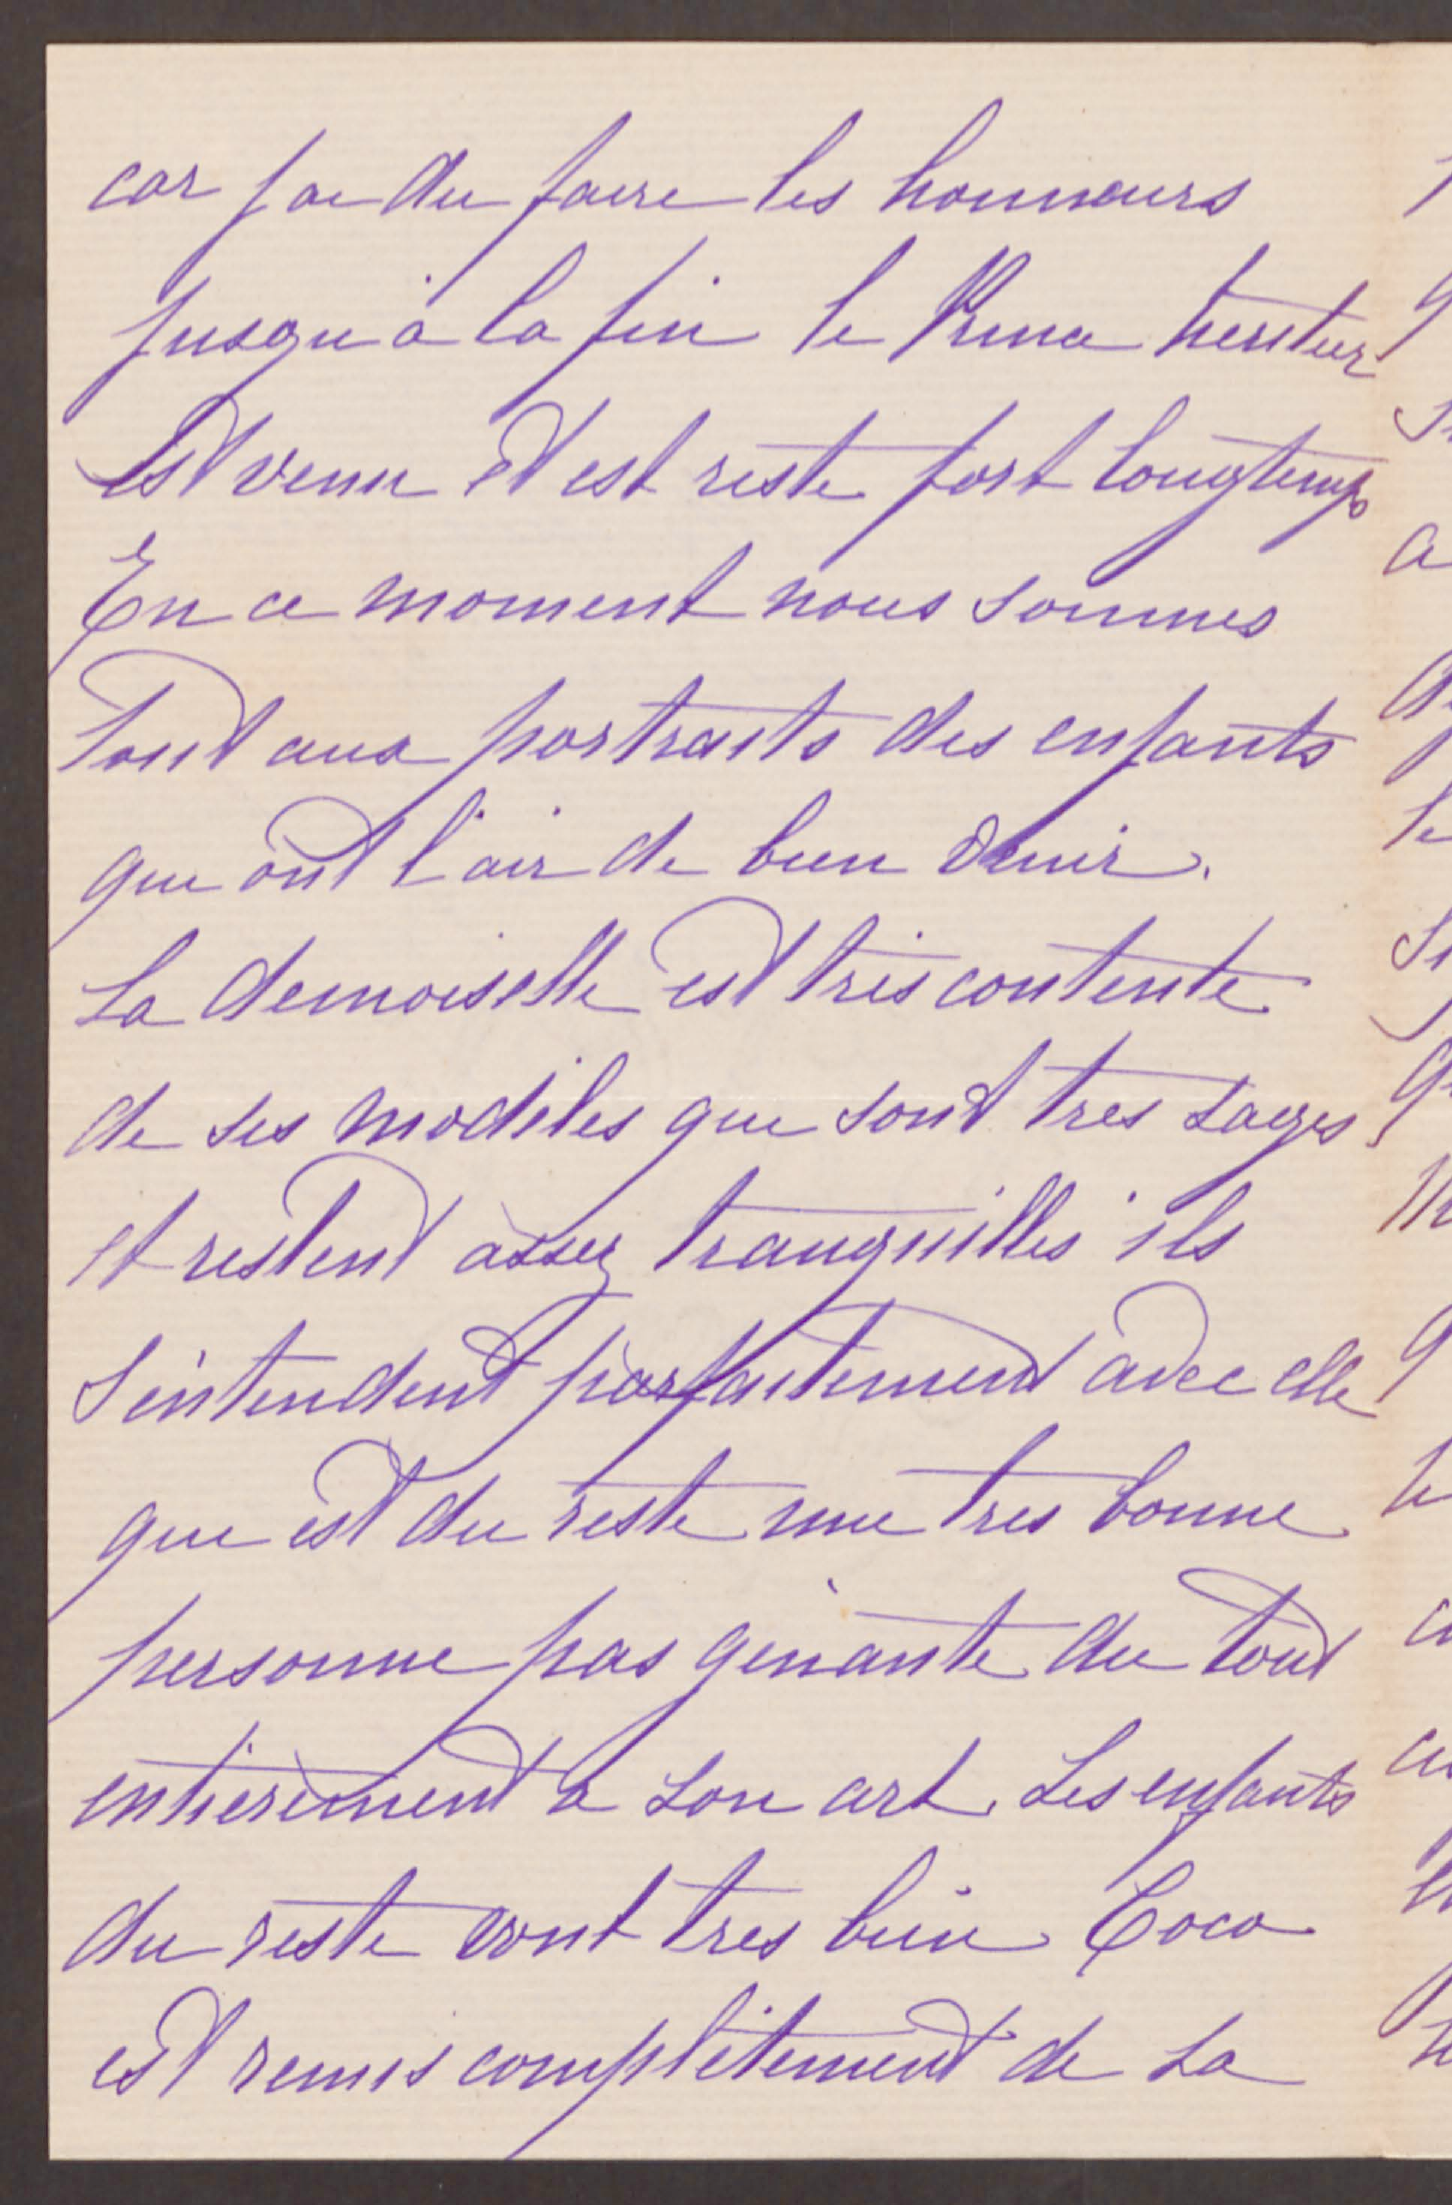 car j'ai du faire les honneurs
jusqu'à la fin le Prince heritier
est venu et est reste fort longtemps
En ce moment nous sommes
tout aux portraits des enfants
qui ont l'air de bien venir.
La demoiselle est très contente
de ses modèles qui sont tres sages
et restent assez tranquilles ils
s'entendent parfaitement avec elle
qui est du reste une tres bonne
personne pas gènante du tout
entièrement a son art. Les enfants
du reste vont tres bien Coco
est remis complètement de sa